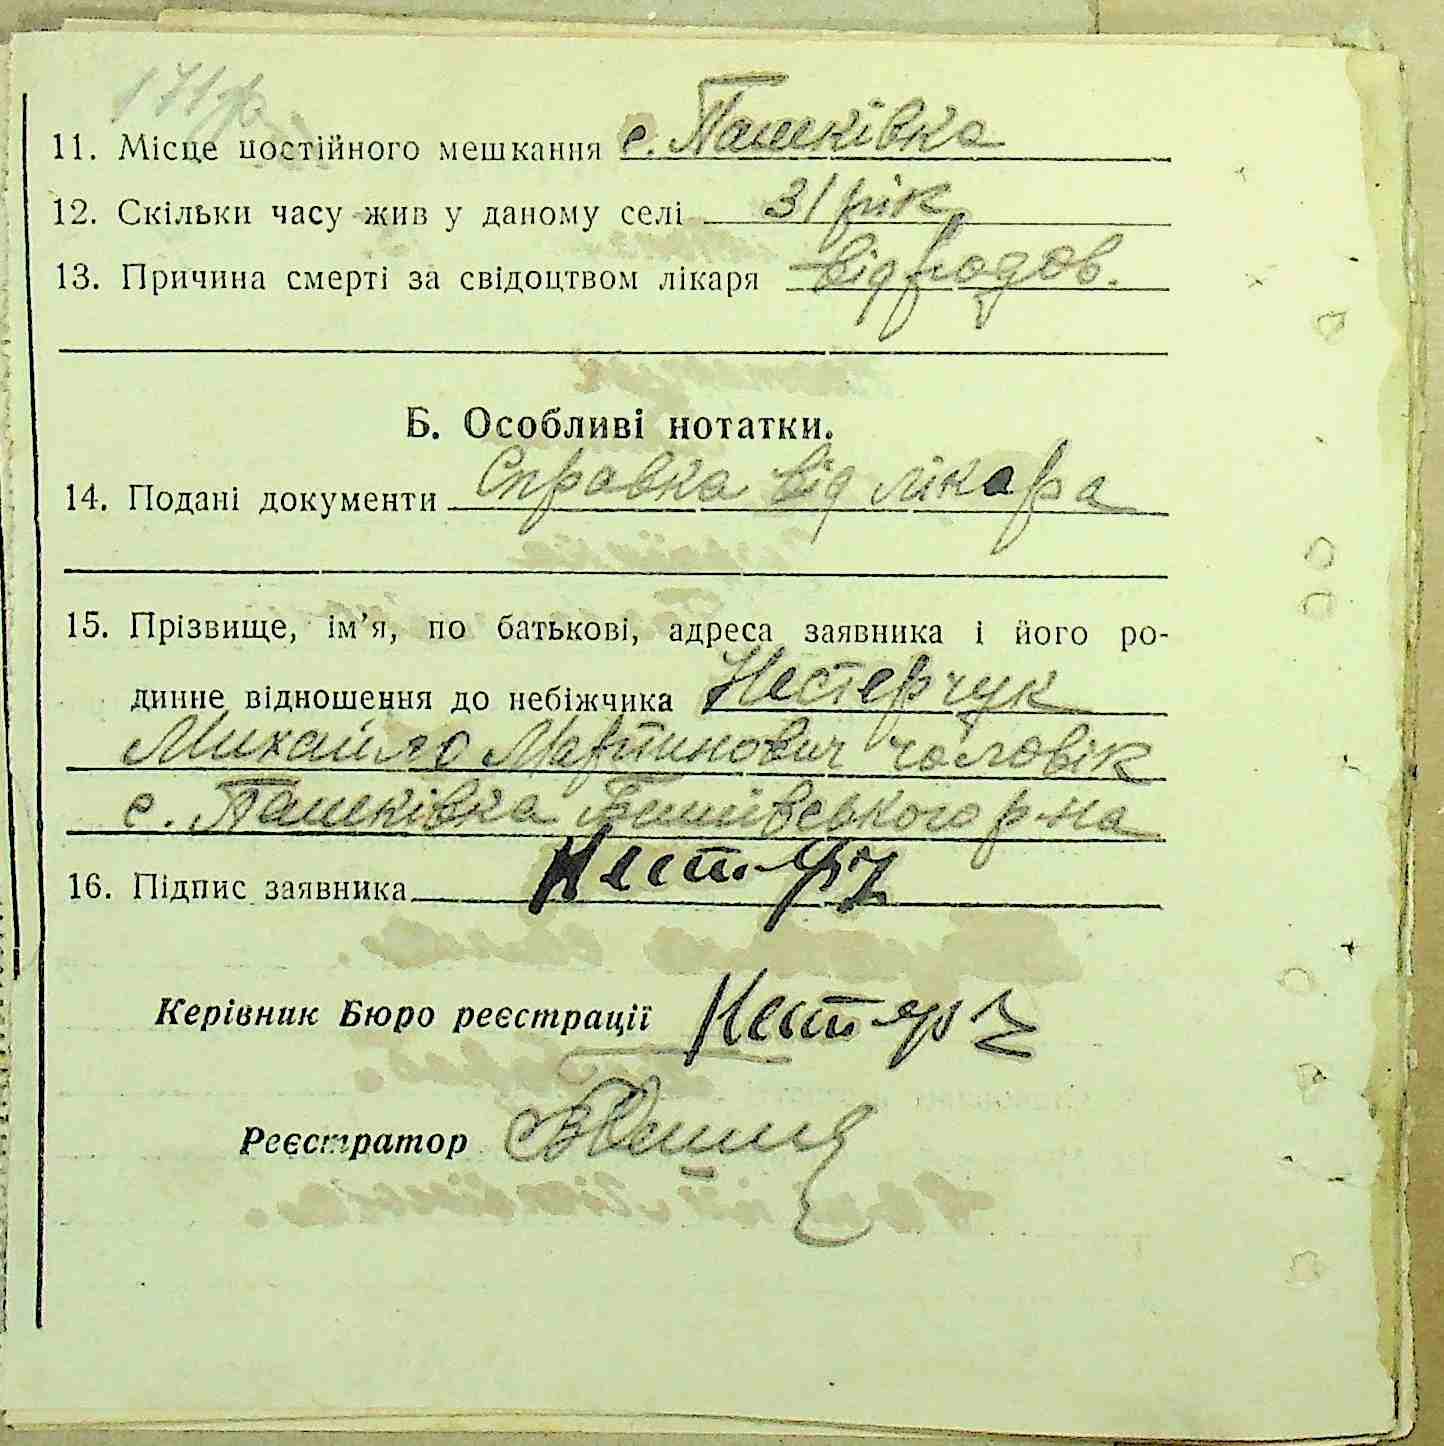 11. Місце постійного мешкання с. Пашківка
12. Скільки часу жив у даному селі 31 рік
13. Причина смерті за свідоцтвом лікаря від родов.
Б. Особливі нотатки.
14. Подані документи Справка від лікара
15. Прізвище, ім’я, по батькові, адреса заявника і його ро-
динне відношення до небіжчика Нестерчук
Михайло Мартинович чоловік
с. Пашківка р-на
16. Підпис заявника
Керівник Бюро реєстрації
Реєстратор